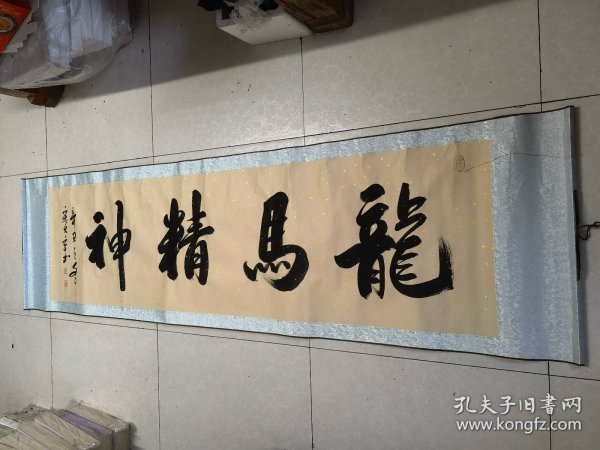 龍馬精神
辛丑之冬
孔夫子旧書网
www.kongfz.com